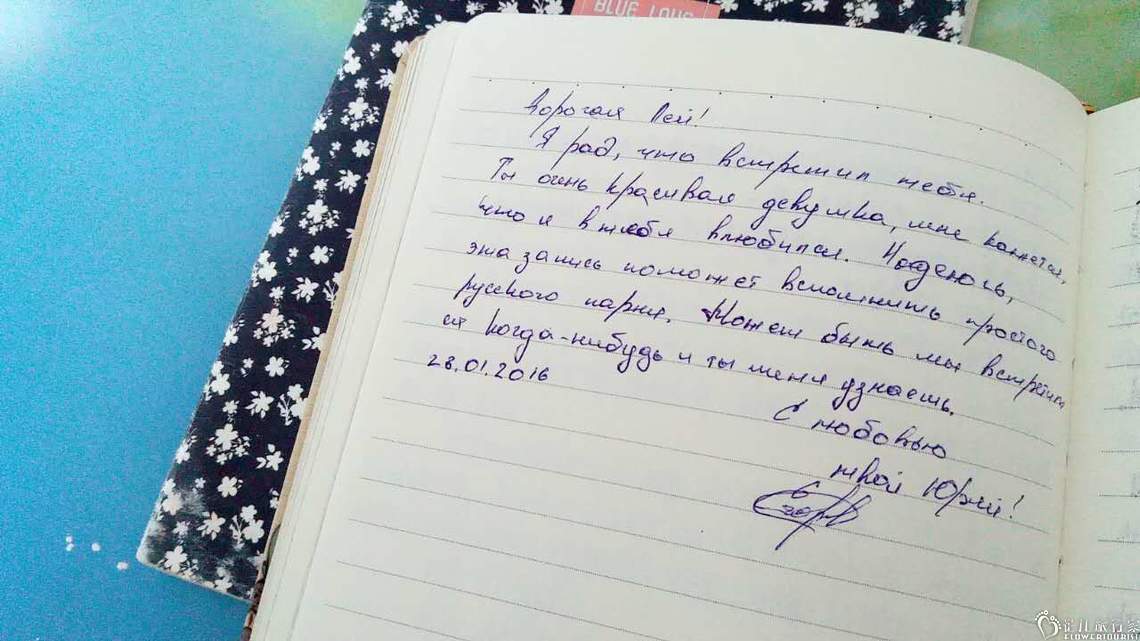 BLUE LOVE
Дорогая Пей!
Я рад, что встретил тебя.
Ты очень красивая девушка, мне кажется,
что я в тебя влюбился. Надеюсь,
эта запись поможет вспомнить простого
русского парня. Может быть мы встретим
ся когда-нибудь и ты меня узнаешь.
28.01.2016
С любовью
твой Юрий!